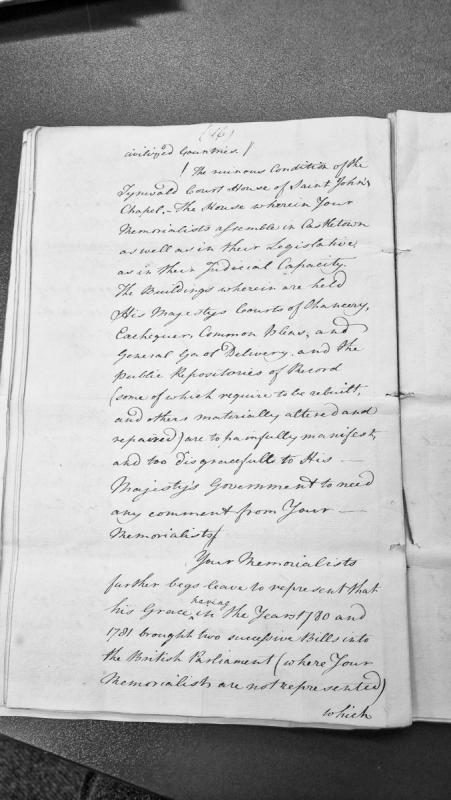 (16)
civilized Countries.
The ruinous Condition of the
Tynwald Court House of Saint John's
Chapel, The House wherein Your
Memorialists assemble in Castletown
as well as in their Legislative,
as in their Judicial Capacity.
The Buildings wherein are held
His Majestys Courts of Chancery,
Exchequer, Common Pleas, and
General Gaol Delivery. and the
Public Repositories of Record
(some of which require to be rebuilt,
and others materially altered and
repaired) are to painfully manifest,
and too disgracefull to His
Majesty's Government to need
any comment from Your
Memorialists
Your Memorialists
further begs leave to represent that
his Grace having in the Years 1780 and
1781 brought two successive Bills into
the British Parliament (where Your
Memorialists are not represented)
which